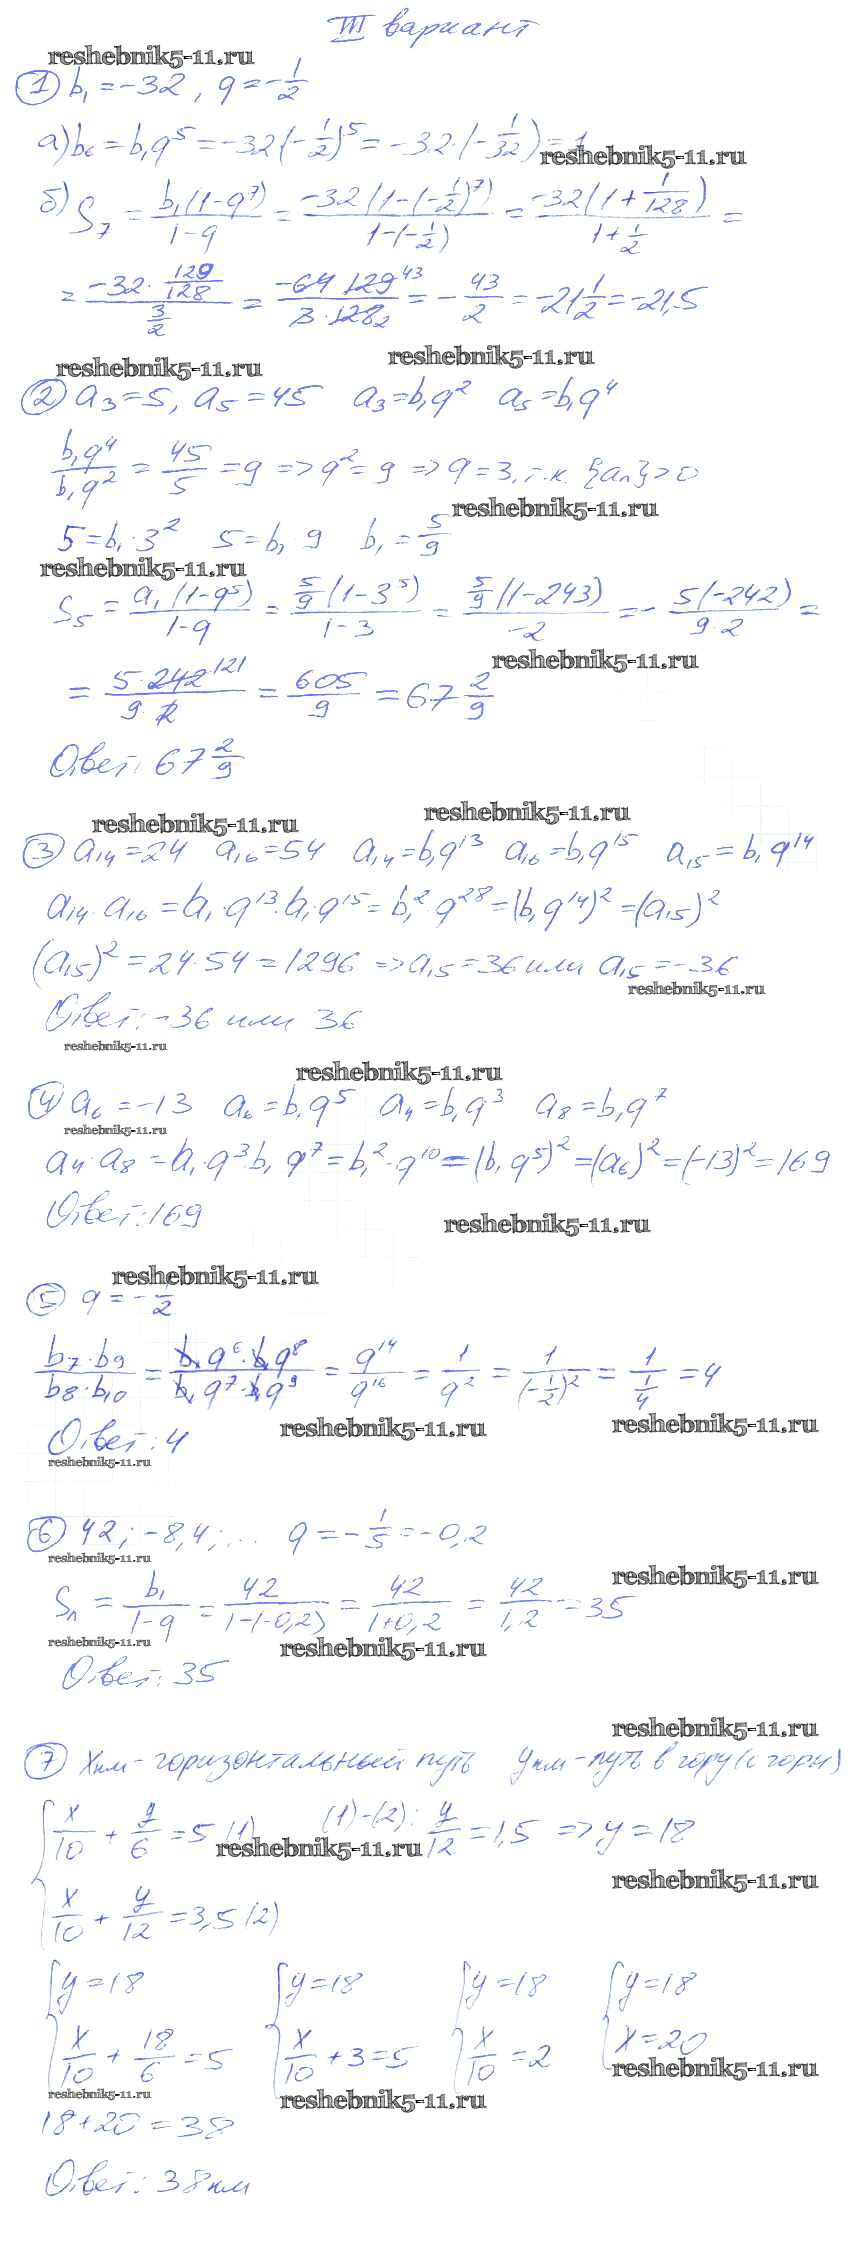 III вариант
reshebnik5-11.ru
① b₁ = -32, q = -1/2
а) b₆ = b₁q⁵ = -32(-1/2)⁵ = -32·(-1/32) = 1
reshebnik5-11.ru
б) S₇ = b₁(1-q⁷)/(1-q) = -32(1-(-1/2)⁷)/(1-(-1/2)) = -32(1+1/128)/(1+1/2) =
= (-32·129/128)/(3/2) = -64·129 43/(3·128 2) = -43/2 = -21 1/2 = -21,5
reshebnik5-11.ru reshebnik5-11.ru
② a₃ = 5, a₅ = 45 a₃ = b₁q² a₅ = b₁q⁴
b₁q⁴/b₁q² = 45/5 = 9 => q² = 9 => q = 3, т.к. {an} > 0
reshebnik5-11.ru
5 = b₁·3² 5 = b₁ 9 b₁ = 5/9
reshebnik5-11.ru
S₅ = a₁(1-q⁵)/(1-q) = 5/9(1-3⁵)/(1-3) = 5/9(1-243)/(-2) = - 5(-242)/(9·2) =
reshebnik5-11.ru
= 5·242 121/(9·2) = 605/9 = 67 2/9
Ответ: 67 2/9
reshebnik5-11.ru reshebnik5-11.ru
③ a₁₄ = 24 a₁₆ = 54 a₁₄ = b₁q¹³ a₁₆ = b₁q¹⁵ a₁₅ = b₁q¹⁴
a₁₄·a₁₆ = a₁·q¹³·a₁·q¹⁵ = b₁²·q²⁸ = (b₁q¹⁴)² = (a₁₅)²
(a₁₅)² = 24·54 = 1296 => a₁₅ = 36 или a₁₅ = -36
reshebnik5-11.ru
Ответ: -36 или 36
reshebnik5-11.ru
reshebnik5-11.ru
④ a₆ = -13 a₆ = b₁q⁵ a₄ = b₁q³ a₈ = b₁q⁷
reshebnik5-11.ru
a₄·a₈ = a₁·q³b₁q⁷ = b₁²·q¹⁰ = (b₁q⁵)² = (a₆)² = (-13)² = 169
Ответ: 169
reshebnik5-11.ru
reshebnik5-11.ru
⑤ q = -1/2
b₇·b₉/b₈·b₁₀ = b₁q⁶·b₁q⁸/b₁q⁷·b₁q⁹ = q¹⁴/q¹⁶ = 1/q² = 1/(-1/2)² = 1/(1/4) = 4
reshebnik5-11.ru reshebnik5-11.ru
Ответ: 4
reshebnik5-11.ru
⑥ 42; -8,4; ... q = -1/5 = -0,2
reshebnik5-11.ru
reshebnik5-11.ru
Sn = b₁/(1-q) = 42/(1-(-0,2)) = 42/(1+0,2) = 42/1,2 = 35
reshebnik5-11.ru reshebnik5-11.ru
Ответ: 35
reshebnik5-11.ru
⑦ x км - горизонтальный путь y км - путь в гору (с горы)
x/10 + y/6 = 5 (1) (1)-(2): y/12 = 1,5 => y = 18
reshebnik5-11.ru
reshebnik5-11.ru
x/10 + y/12 = 3,5 (2)
y = 18 y = 18 y = 18 y = 18
x/10 + 18/6 = 5 x/10 + 3 = 5 x/10 = 2 x = 20
reshebnik5-11.ru
reshebnik5-11.ru reshebnik5-11.ru
18 + 20 = 38
Ответ: 38 км